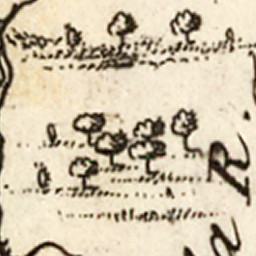 a R.